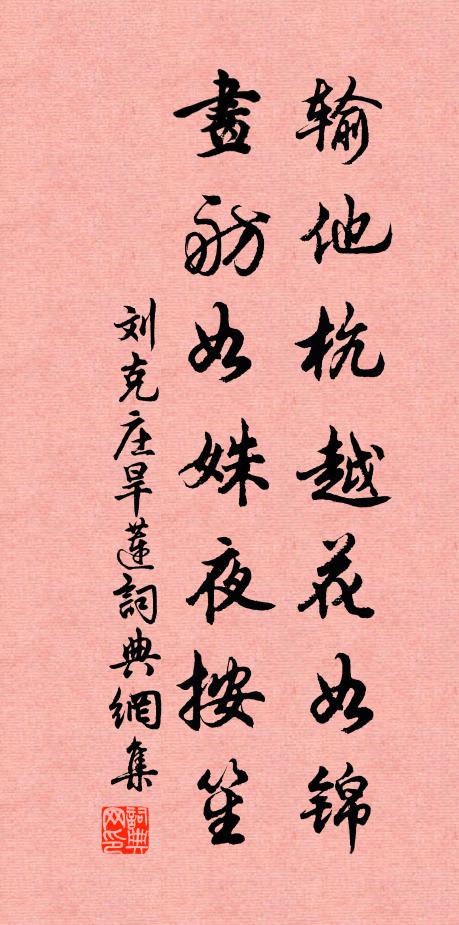 输他杭越花如锦
畫舫如姝夜按笙
刘克庄旱蓮詞典網集
詞典
网印